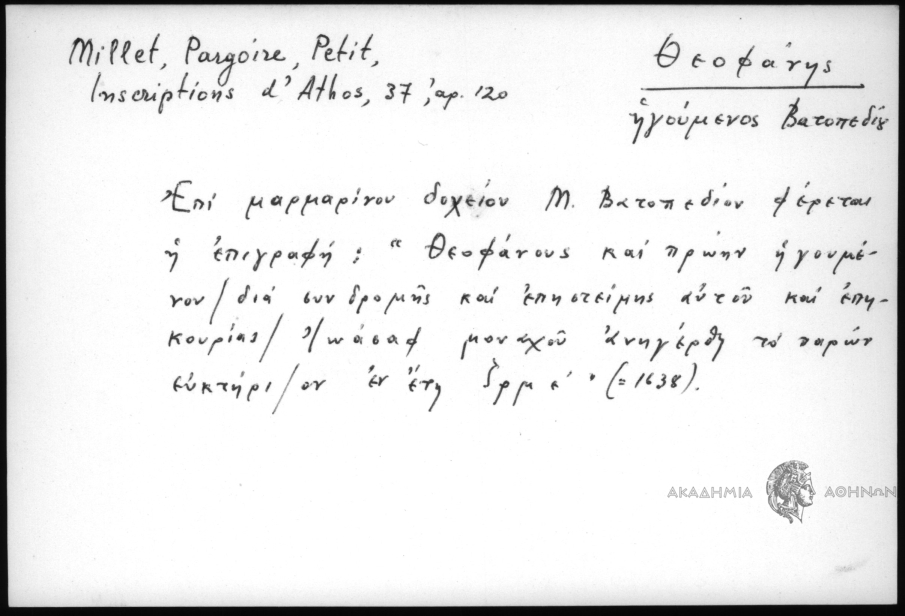 Millet, Pargoire, Petit,
Inscriptions d' Athos, 37, ἀρ. 120
Θεοφάνης
ἡγούμενος Βατοπεδίου
Ἐπί μαρμαρίνου δοχείου Μ. Βατοπεδίου φέρεται
ἡ ἐπιγραφή : " Θεοφάνους καί πρώην ἡγουμέ-
νου/διά συνδρομῆς καί ἐπηστείμης αὐτοῦ καί ἐπη-
κουρίας/ Ἰωάσαφ μοναχοῦ ἀνηγέρθη τό παρών
εὐκτήρι/ον ἐν ἔτη ͵ζρμς΄" (=1638).
ΑΚΑΔΗΜΙΑ ΑΘΗΝΩΝ